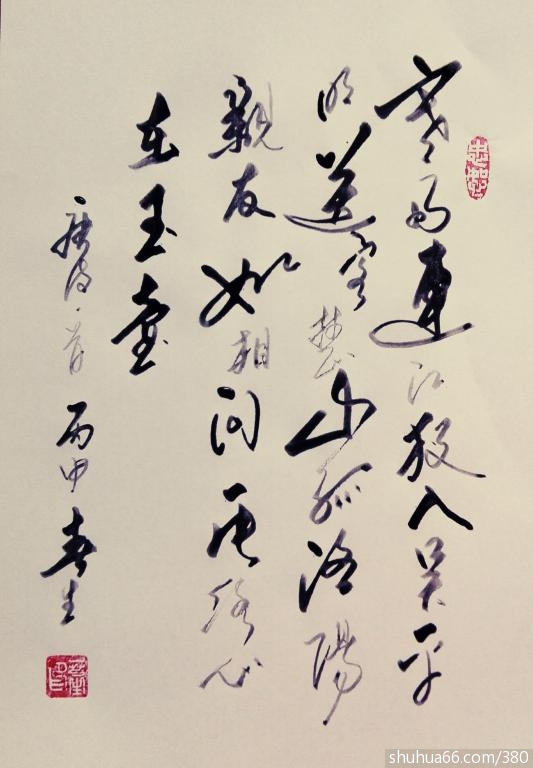 寒雨連江夜入吴平
明送客楚山孤洛陽
親友如相问一片冰心
在玉壺
唐诗一首 丙申 春生
忠恕
shuhua66.com/380